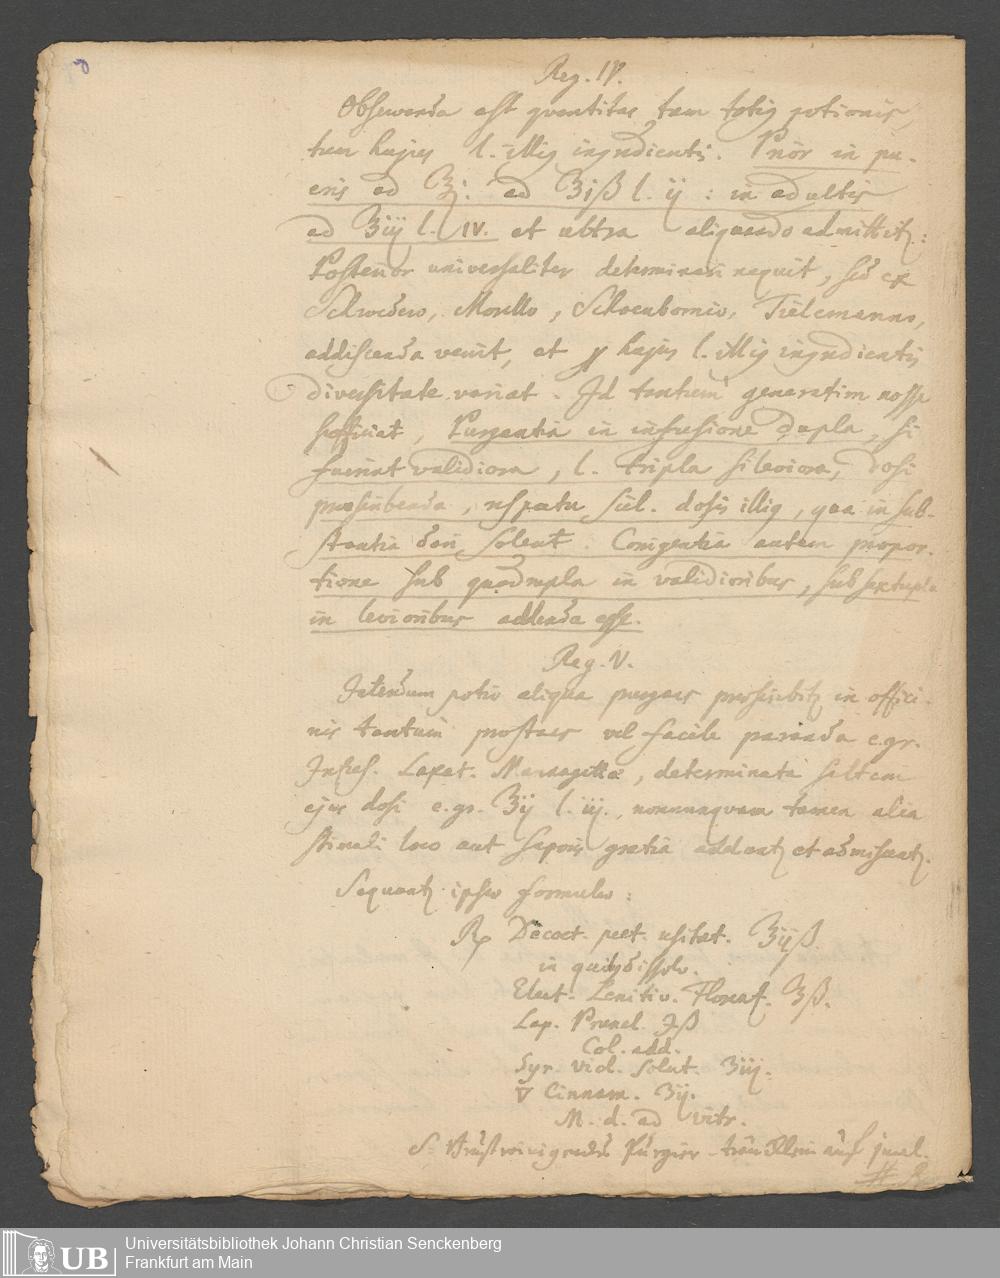 Reg. IV.
Observanda est quantitas tam totiq potionis,
tum hujus l. illiq ingredientis. Prior in pu-
eris ad ℥j. ad ℥jß l. ij : in adultis
ad ℥iij l. IV. et ultra aliquando admittitꝫ:
Posterior universaliter determinari nequit, sed ex
Schroedero, Morello, Schoenbornio, Tielemanno,
addiscenda venit, et ꝓ hujus l. illiq ingredientis
diversitate variat. Id tantum generatim nosse
sufficiat, Purgantia in infusione dupla, si
fuerint validiora, l. tripla si leviora, dosi
praescribenda, respectu scil. dosis illiq, qua in sub-
stantia dari solent. Corrigentia autem propor-
tione sub quadrupla in validioribus, sub sextupla
in levioribus addenda esse.
Reg. V.
Interdum potio aliqua purgans praescribitꝫ in offici-
nis tantum prostans vel facile paranda e.gr.
Infus. Laxat. Mannagettae, determinata saltem
ejus dosi e.gr. ℥ij l. iij., nonnunquam tamen alia
stimuli loco aut saporis gratia addantꝫ et admiscantꝫ.
Sequantꝫ ipsae formulae:
Rp Decoct. pect. usitat. ℥iijß
in quibq dissolv.
Elect. Lenitiv. ℥ß.
Lap. Prunel. ℈ß
Col. add.
Syr. viol. solut. ℥iij.
▽ Cinnam. ʒij.
M. d. ad vitr.
S. Brustreinigendes Purgier-tränklein auf jmal.
Universitätsbibliothek Johann Christian Senckenberg
Frankfurt am Main
UB